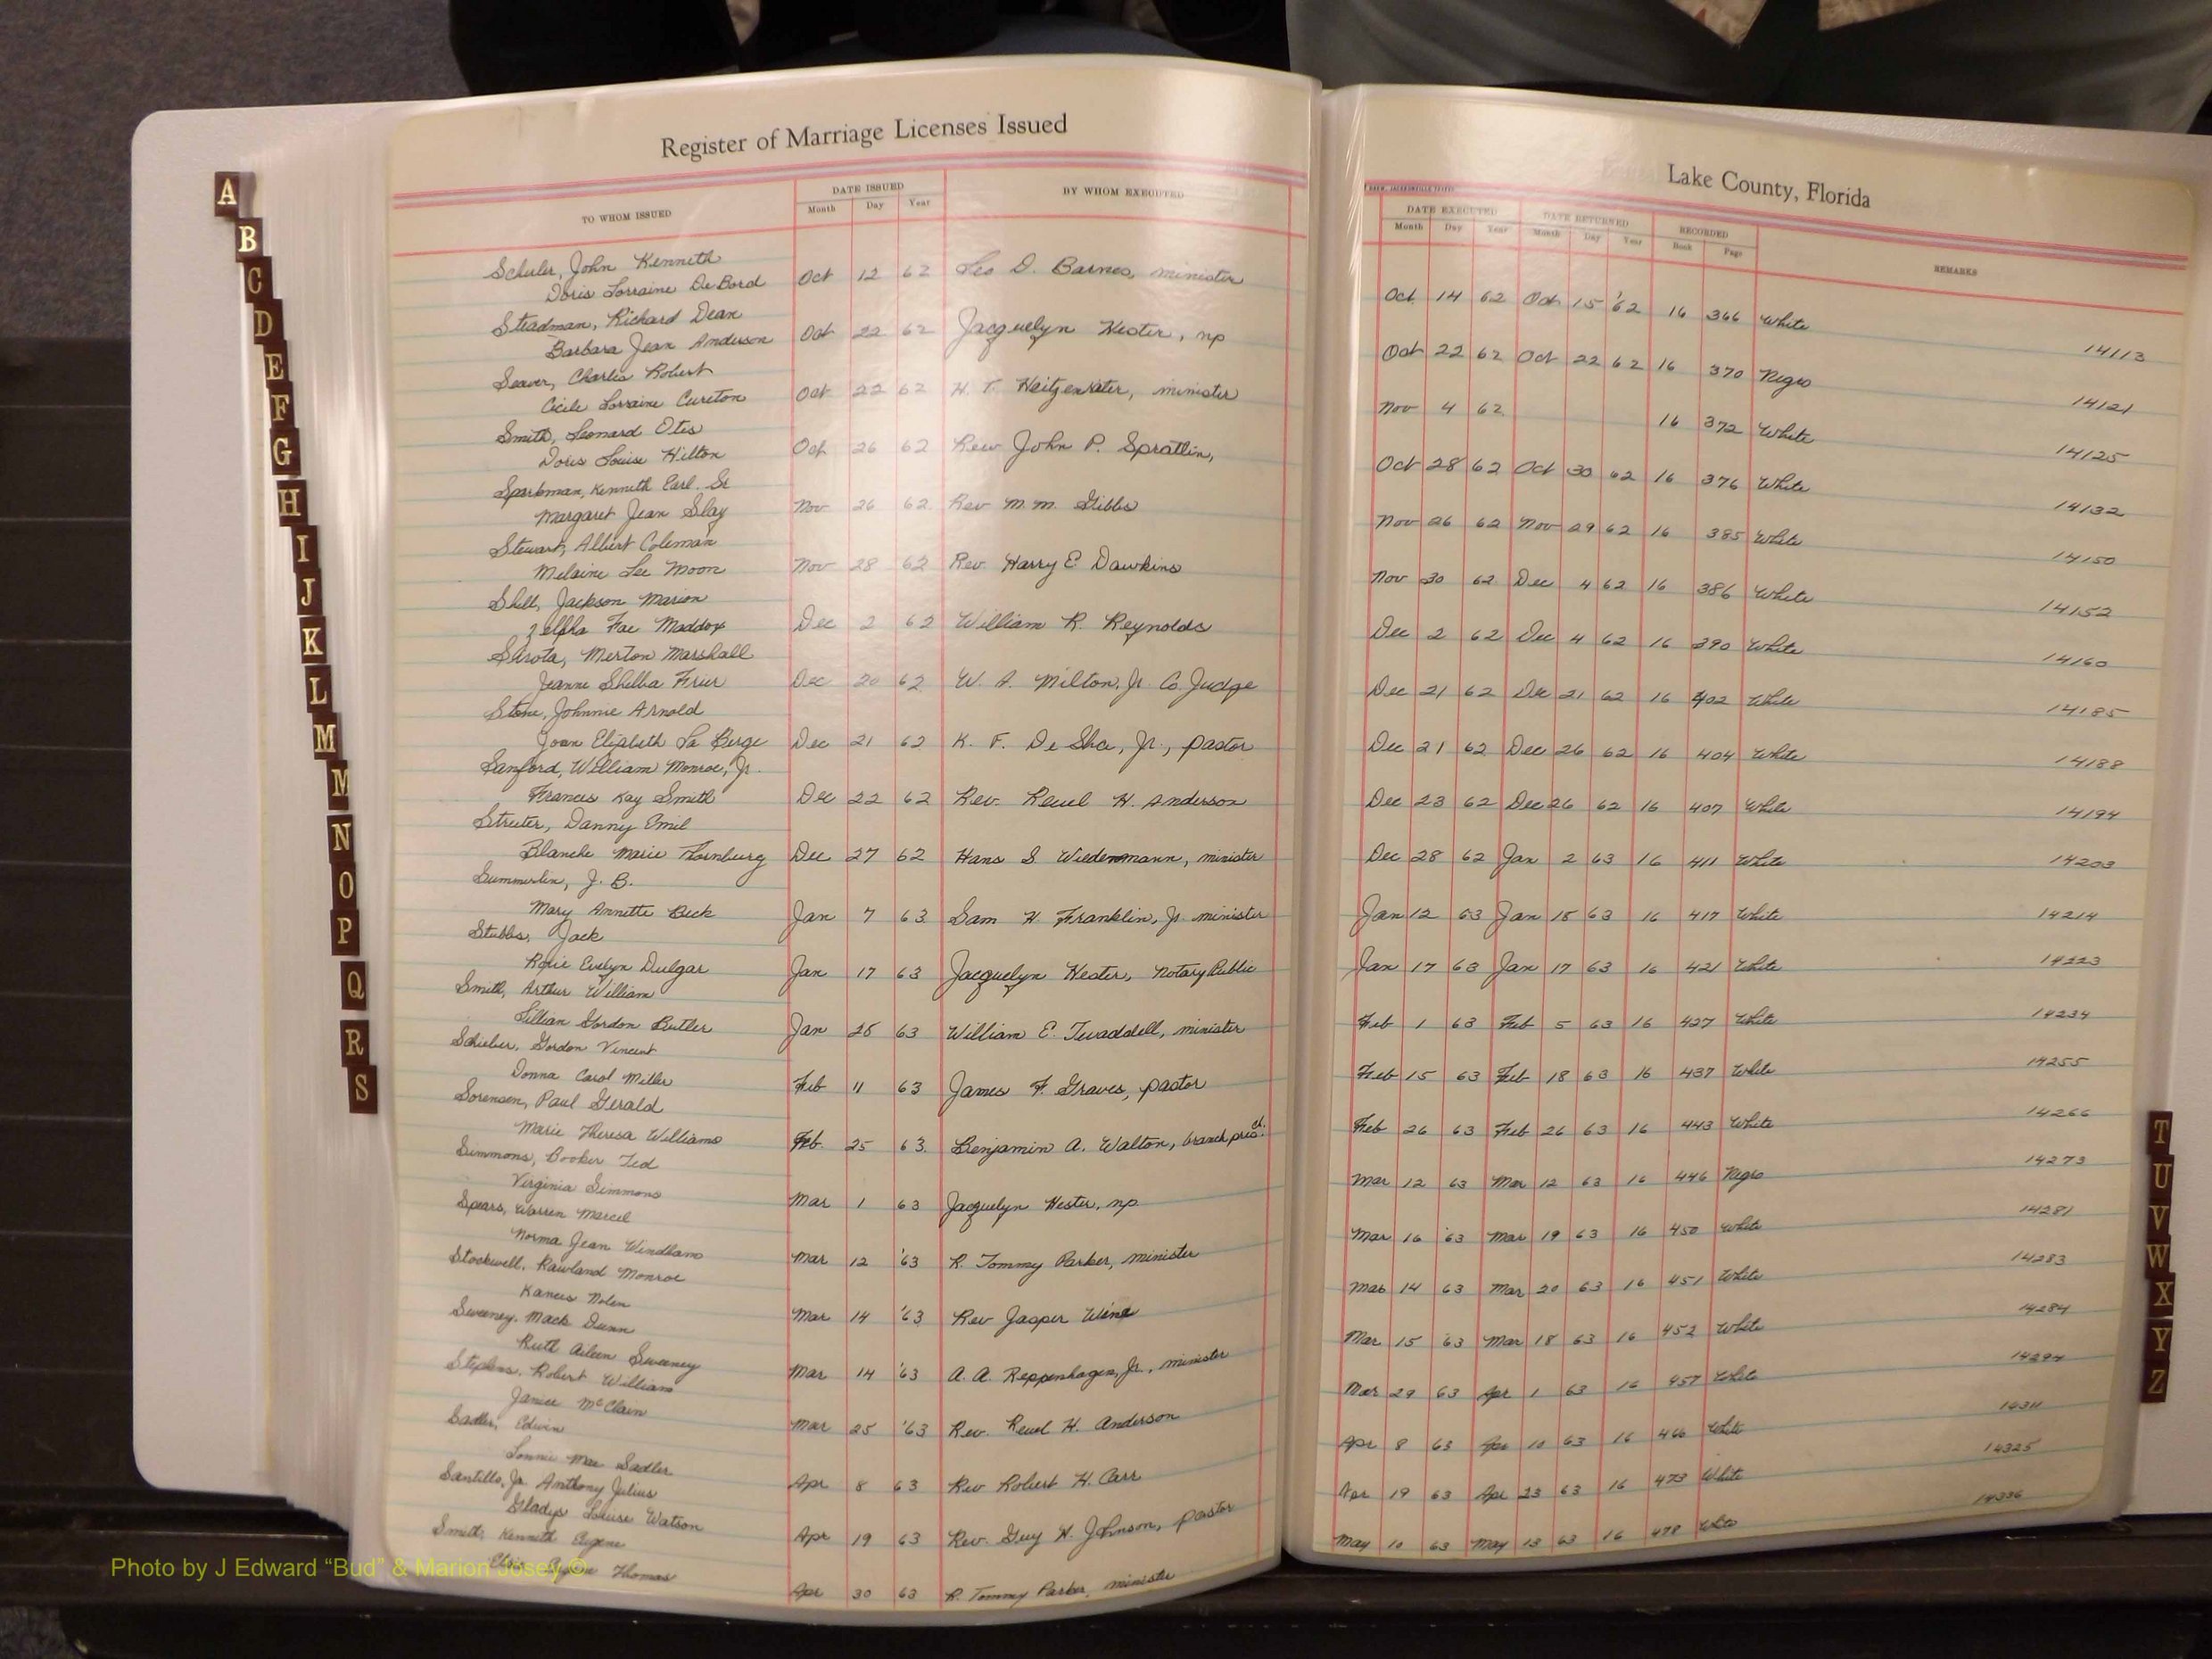 Register of Marriage Licenses Issued
Lake County, Florida
TO WHOM ISSUED
DATE ISSUED
Month Day Year
BY WHOM EXECUTED
DATE EXECUTED
Month Day Year
DATE RETURNED
Month Day Year
RECORDED
Book Page
REMARKS
Schuler, John Kenneth
Doris Lorraine DeBord Oct 12 62 Leo D. Barnes, minister Oct 14 62 Oct 15 '62 16 366 White 14113
Steadman, Richard Dean
Barbara Jean Anderson Oct 22 62 Jacquelyn Hester, np Oct 22 62 Oct 22 62 16 370 Negro 14121
Seaver, Charles Robert
Cicile Lorraine Cureton Oct 22 62 H. T. Heitzenrater, minister Nov 4 62 16 372 White 14125
Smith, Leonard Otis
Doris Louise Hilton Oct 26 62 Rev John P. Spratlin, Oct 28 62 Oct 30 62 16 376 White 14132
Sparkman, Kenneth Earl. Sr
Margaret Jean Slay Nov 26 62 Rev M. M. Gibbs Nov 26 62 Nov 29 62 16 385 White 14150
Stewart, Albert Coleman
Melaine Lee Moon Nov 28 62 Rev. Harry E. Dawkins Nov 30 62 Dec 4 62 16 386 White 14152
Shell, Jackson Marion
Zelpha Fae Maddox Dec 2 62 William R. Reynolds Dec 2 62 Dec 4 62 16 390 White 14160
Sirota, Merton Marshall
Jeanne Shelba Frier Dec 20 62 W. A. Milton, Jr. Co. Judge Dec 21 62 Dec 21 62 16 402 White 14185
Stone, Johnnie Arnold
Joan Elizabeth La Berge Dec 21 62 K. F. De Sha, Jr., pastor Dec 21 62 Dec 26 62 16 404 White 14188
Sanford, William Monroe, Jr.
Frances Kay Smith Dec 22 62 Rev. Reuel H. Anderson Dec 23 62 Dec 26 62 16 407 White 14194
Streeter, Danny Emil
Blanche Marie Thornburg Dec 27 62 Hans S. Wiedenmann, minister Dec 28 62 Jan 2 63 16 411 White 14203
Summerlin, J. B.
Mary Annette Beck Jan 7 63 Sam H. Franklin, Jr. minister Jan 12 63 Jan 15 63 16 417 White 14214
Stubbs, Jack
Rosie Evelyn Dulgar Jan 17 63 Jacquelyn Hester, Notary Public Jan 17 63 Jan 17 63 16 421 White 14223
Smith, Arthur William
Lillian Gordon Butler Jan 25 63 William E. Twaddell, minister Feb 1 63 Feb 5 63 16 427 White 14234
Schieber, Gordon Vincent
Donna Carol Miller Feb 11 63 James F. Graves, pastor Feb 15 63 Feb 18 63 16 437 White 14255
Sorensen, Paul Gerald
Marie Theresa Williams Feb. 25 63. Benjamin A. Walton, branch pres. Feb 26 63 Feb 26 63 16 443 White 14266
Simmons, Booker Ted
Virginia Simmons Mar 1 63 Jacquelyn Hester, np. Mar 12 63 Mar 12 63 16 446 Negro 14273
Spears, Warren Marcel
Norma Jean Windham Mar 12 '63 R. Tommy Parker, minister Mar 16 '63 Mar 19 63 16 450 White 14281
Stockwell, Rawland Monroe
Nolen Mar 14 '63 Rev Jasper Wine Mar 14 63 Mar 20 63 16 451 White 14283
Sweeney, Mack Dunn
Ruth Aileen Sweeney Mar 14 '63 A. A. Reppenhagen, Jr., minister Mar 15 '63 Mar 18 63 16 452 White 14284
Stephens, Robert William
Janice McClain Mar 25 '63 Rev. Reuel H. Anderson Mar 29 63 Apr 1 63 16 457 White 14294
Sadler, Edwin
Lonnie Mae Sadler Apr 8 63 Rev Robert H. Carr Apr 8 63 Apr 10 63 16 466 White 14311
Santillo, Jr. Anthony Julius
Gladys Louise Watson Apr 19 63 Rev. Guy H. Johnson, pastor Apr 19 63 Apr 23 63 16 473 White 14325
Smith, Kenneth Eugene
Thomas Apr 30 63 R. Tommy Parker, minister May 10 63 May 13 63 16 478 White 14336
A
B
C
D
E
F
G
H
I
J
K
L
M
M
N
O
P
Q
R
S
T
U
V
W
X
Y
Z
Photo by J Edward “Bud” & Marion Josey ©